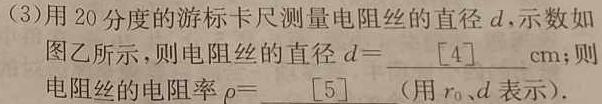 (3)用 20 分度的游标卡尺测量电阻丝的直径 d,示数如
图乙所示,则电阻丝的直径 d= [4] cm;则
电阻丝的电阻率 ρ= [5] (用 r₀、d 表示).